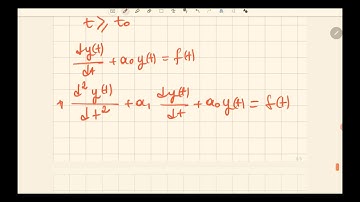 t ≥ t₀
dy(t)/dt + a₀ y(t) = f(t)
d²y(t)/dt² + a₁ dy(t)/dt + a₀ y(t) = f(t)